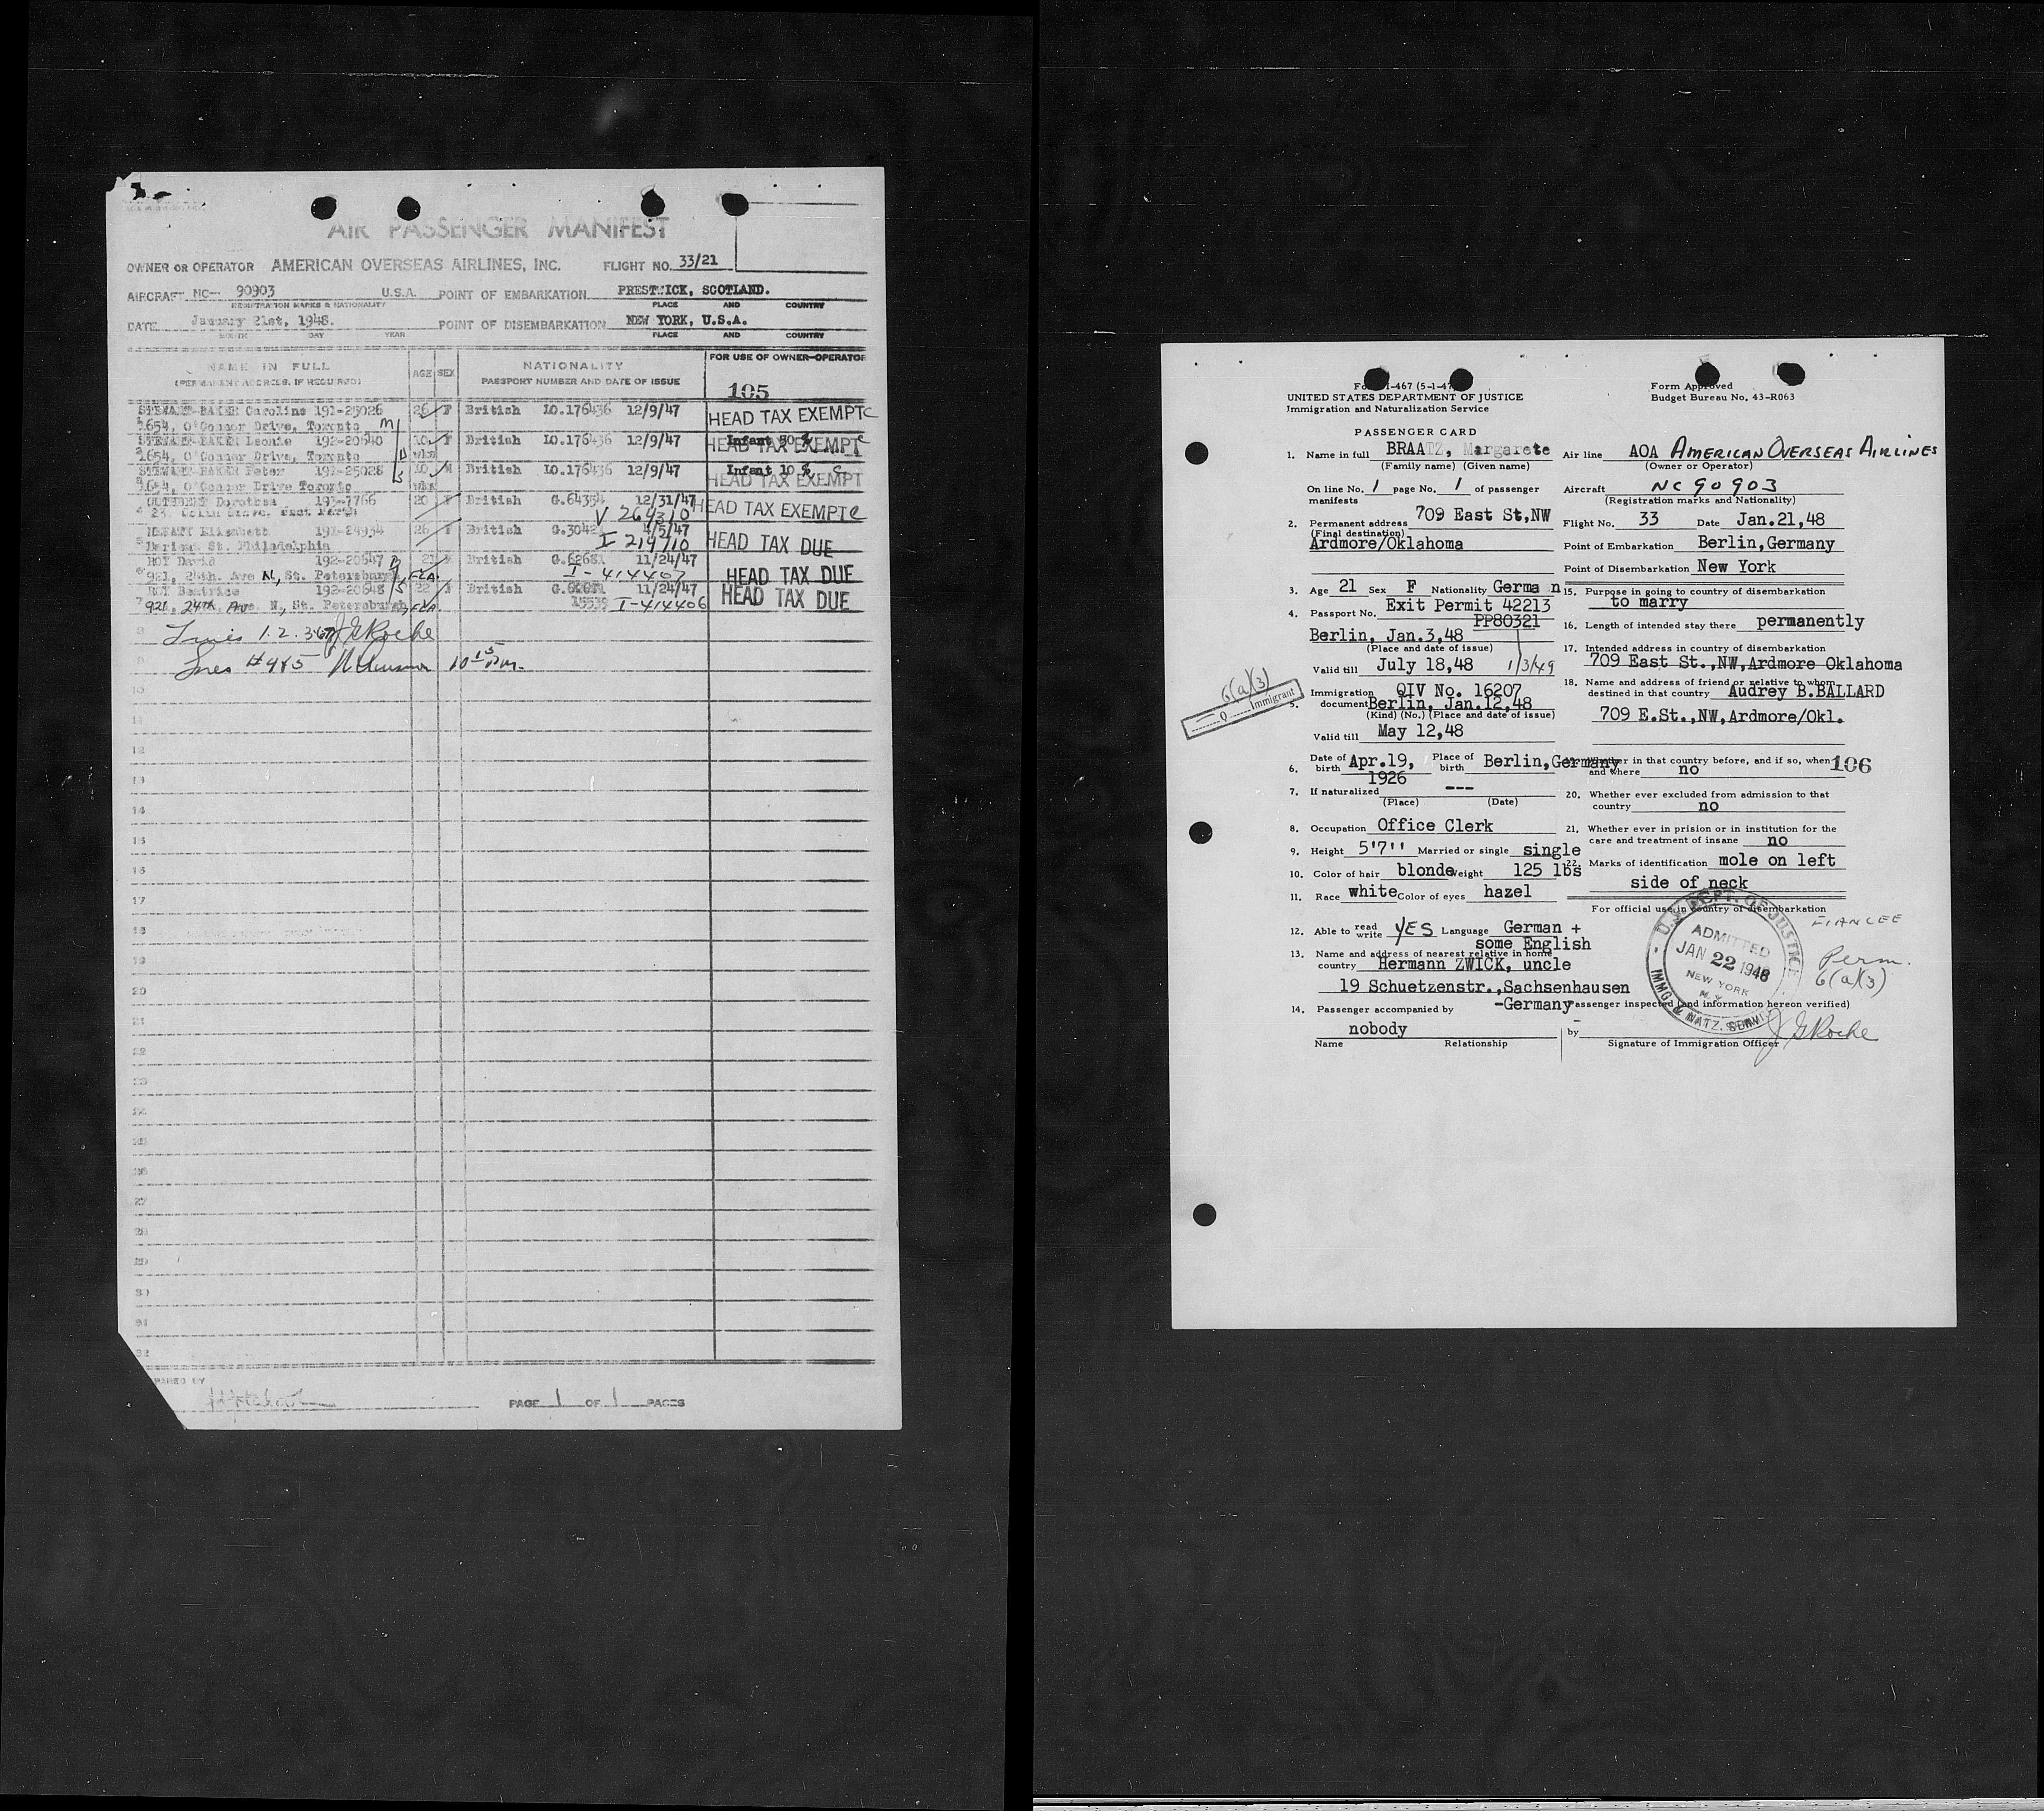 AIR PASSENGER MANIFEST
OWNER OR OPERATOR AMERICAN OVERSEAS AIRLINES, INC. FLIGHT NO. 33/21
AIRCRAFT NC— 90903 U.S.A. POINT OF EMBARKATION PRESTWICK, SCOTLAND.
REGISTRATION MARKS & NATIONALITY PLACE AND COUNTRY
DATE January 21st, 1948. POINT OF DISEMBARKATION NEW YORK, U.S.A.
MONTH DAY YEAR PLACE AND COUNTRY
NAME IN FULL AGE SEX NATIONALITY FOR USE OF OWNER-OPERATOR
(PERMANENT ADDRESS, IF REQUIRED) PASSPORT NUMBER AND DATE OF ISSUE
105
STEWART-BAKER Caroline 191-25026 26 F British LO.176436 12/9/47 HEAD TAX EXEMPT
1654, O'Connor Drive, Toronto
STEWART-BAKER Leonie 192-20640 10 F British LO.176436 12/9/47 Infant HEAD TAX EXEMPT
2 1654, O'Connor Drive, Toronto wks
STEWART-BAKER Peter 191-25028 10 M British LO.176436 12/9/47 Infant 10 % HEAD TAX EXEMPT
3 1654, O'Connor Drive Toronto wks
Dorothea 193-7766 20 F British G.6435 12/31/47 HEAD TAX EXEMPT
4 V 264310
Elisabeth 191-24934 26 F British G.3042 4/5/47 HEAD TAX DUE
5 St. Philadelphia I 219710
ROY David 192-20647 21 British G.62681 11/24/47 HEAD TAX DUE
6 921, 24th. Ave N, St. Petersburg, FLA. I-414407
ROY Beatrice 192-20648 22 F British 11/24/47 HEAD TAX DUE
7 921, 24TH Ave. N., St. Petersburg, FLA 15539 I-414406
8 Lines 1.2.3.6.7 J G Roche
9 Lines #4&5 10 15 P.M.
10
11
12
13
14
15
16
17
18
19
20
21
22
23
24
25
26
27
28
29
30
31
32
PREPARED BY
PAGE 1 OF 1 PAGES
Form I-467 (5-1-47) Form Approved
UNITED STATES DEPARTMENT OF JUSTICE Budget Bureau No. 43-R063
Immigration and Naturalization Service
PASSENGER CARD
1. Name in full BRAATZ, Margarete Air line AOA AMERICAN OVERSEAS AIRLINES
(Family name) (Given name) (Owner or Operator)
On line No. 1 page No. 1 of passenger manifests Aircraft NC 90903
(Registration marks and Nationality)
2. Permanent address 709 East St,NW Flight No. 33 Date Jan.21,48
(Final destination)
Ardmore/Oklahoma Point of Embarkation Berlin,Germany
Point of Disembarkation New York
3. Age 21 Sex F Nationality German 15. Purpose in going to country of disembarkation
to marry
4. Passport No. Exit Permit 42213
PP80321 16. Length of intended stay there permanently
Berlin, Jan.3,48
(Place and date of issue) 17. Intended address in country of disembarkation
Valid till July 18,48 1/3/49 709 East St.,NW,Ardmore Oklahoma
6(a)(3)
Immigrant
5. Immigration document QIV No. 16207 18. Name and address of friend or relative to whom
Berlin, Jan.12,48 destined in that country Audrey B.BALLARD
(Kind) (No.) (Place and date of issue) 709 E.St.,NW,Ardmore/Okl.
Valid till May 12,48
6. Date of birth Apr.19, 1926 Place of birth Berlin,Germany Whether in that country before, and if so, when and where no 106
7. If naturalized --- 20. Whether ever excluded from admission to that
(Place) (Date) country no
8. Occupation Office Clerk 21. Whether ever in prision or in institution for the
care and treatment of insane no
9. Height 5'7'' Married or single single
22. Marks of identification mole on left
10. Color of hair blonde Weight 125 lbs
side of neck
11. Race white Color of eyes hazel
For official use in country of disembarkation
FIANCEE
12. Able to read write YES Language German +
some English
U.S. DEPT. OF JUSTICE
ADMITTED
JAN 22 1948
NEW YORK
N.Y.
IMMG. & NATZ. SERV.
Perm.
6(a)(3)
13. Name and address of nearest relative in home
country Hermann ZWICK, uncle
19 Schuetzenstr.,Sachsenhausen
-Germany
14. Passenger accompanied by Passenger inspected (and information hereon verified)
nobody by J G Roche
Name Relationship Signature of Immigration Officer